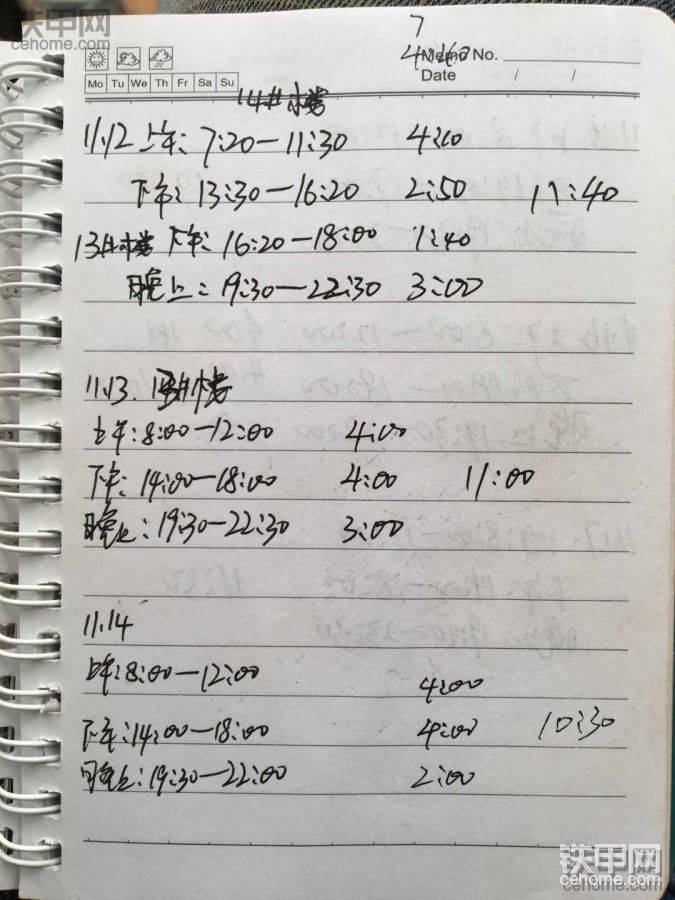 铁甲网
cehome.com
7
Memo No.
Mo Tu We Th Fr Sa Su
Date / /
14#楼
11.12 上午: 7:20-11:30 4:10
下午: 13:30-16:20 2:50 11:40
13#楼 下午: 16:20-18:00 1:40
晚上: 19:30-22:30 3:00
11.13. 楼
上午: 8:00-12:00 4:00
下午: 14:00-18:00 4:00 11:00
晚上: 19:30-22:30 3:00
11.14
上午: 8:00-12:00 4:00
下午: 14:00-18:00 4:00 10:30
晚上: 19:30-22:00 2:00
铁甲网
cehome.com